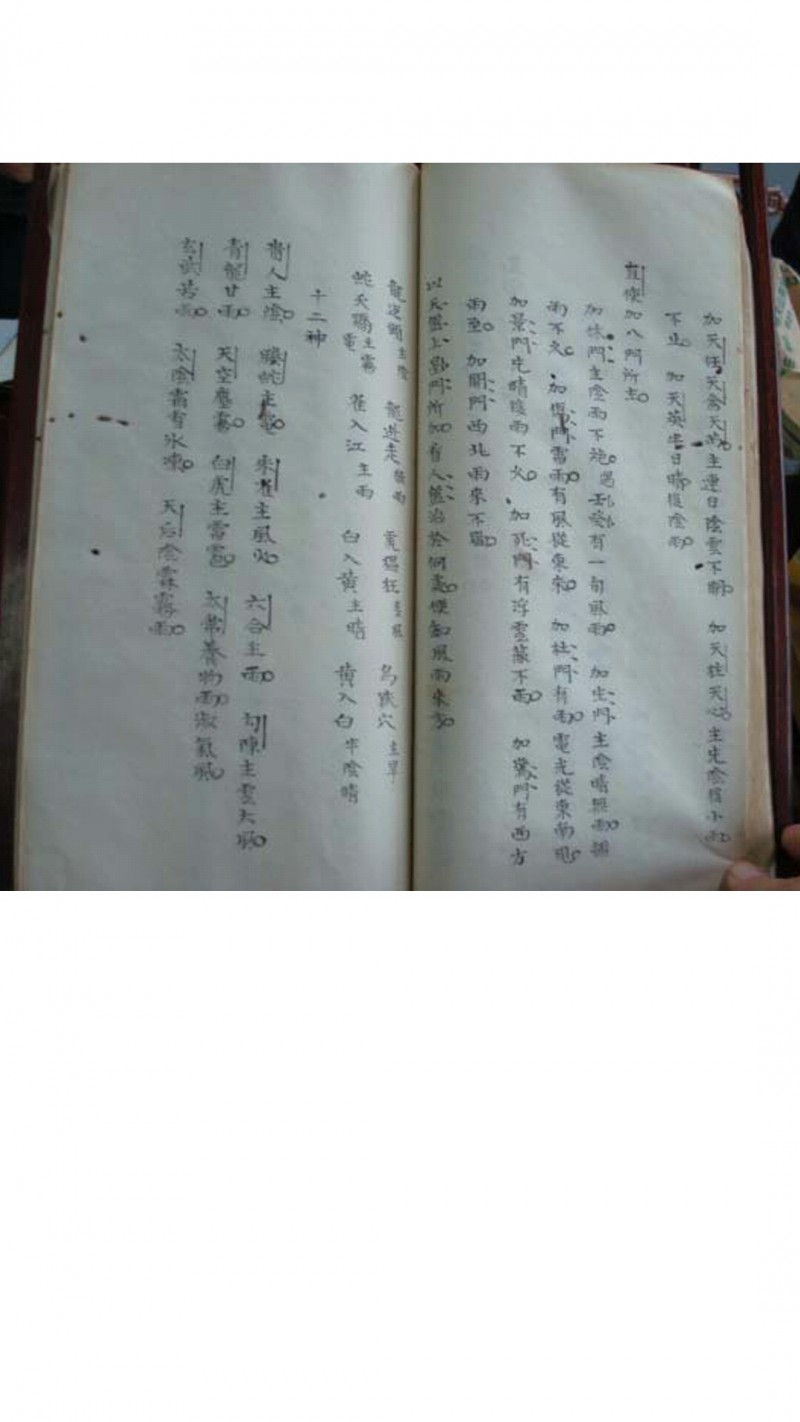 加天任天禽天芮主連日陰雲不開 加天柱天心主先陰後小雨
不止 加天英半日晴後陰雨
直使加八門所主
加休門主陰雨不絕遇壬癸有一旬風雨 加生門主陰晴無雨
雨不久 加傷門雷雨有風從東來 加杜門有雨電光從東南
加景門先晴後雨不久 加死門有浮雲蔽不雨 加驚門有西方
雨至 加開門西北雨來不
以天盤上 門所加看人盤泊於何 知風雨來
龍返頭主陰 龍逃走 雨 虎猖狂主風 鳥跌穴主旱
蛇夭矯主霧電 雀入江主雨 白入黃主晴 黃入白半陰晴
十二神
貴人主陰 騰蛇主電 朱雀主風火 六合主雨 勾陳主雲大風
青龍甘雨 天空塵霧 白虎主雷雹 太常養物雨淑氣風
玄武苦雨 太陰霜雪冰凍 天后陰霖霧雨